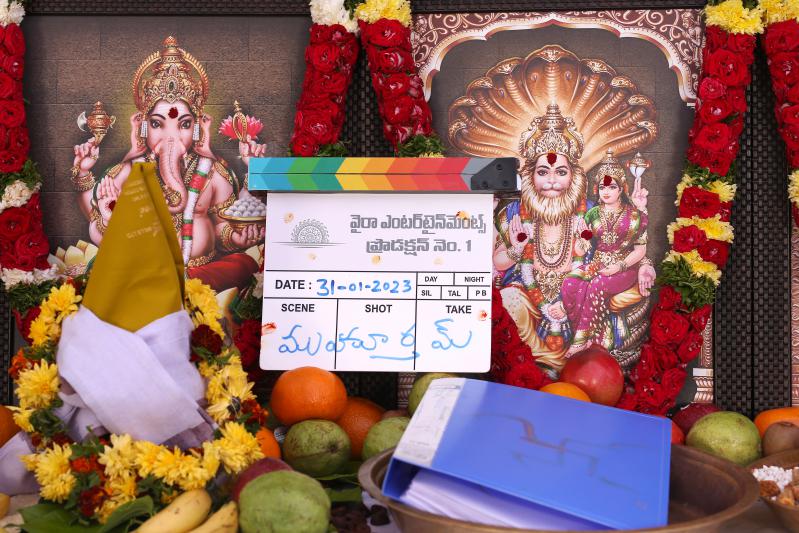 వైరా ఎంటర్‌టైన్‌మెంట్స్
ప్రొడక్షన్ నెం. 1
DATE : 31-01-2023
DAY NIGHT
SIL TAL P B
SCENE SHOT TAKE
ముహూర్తమ్